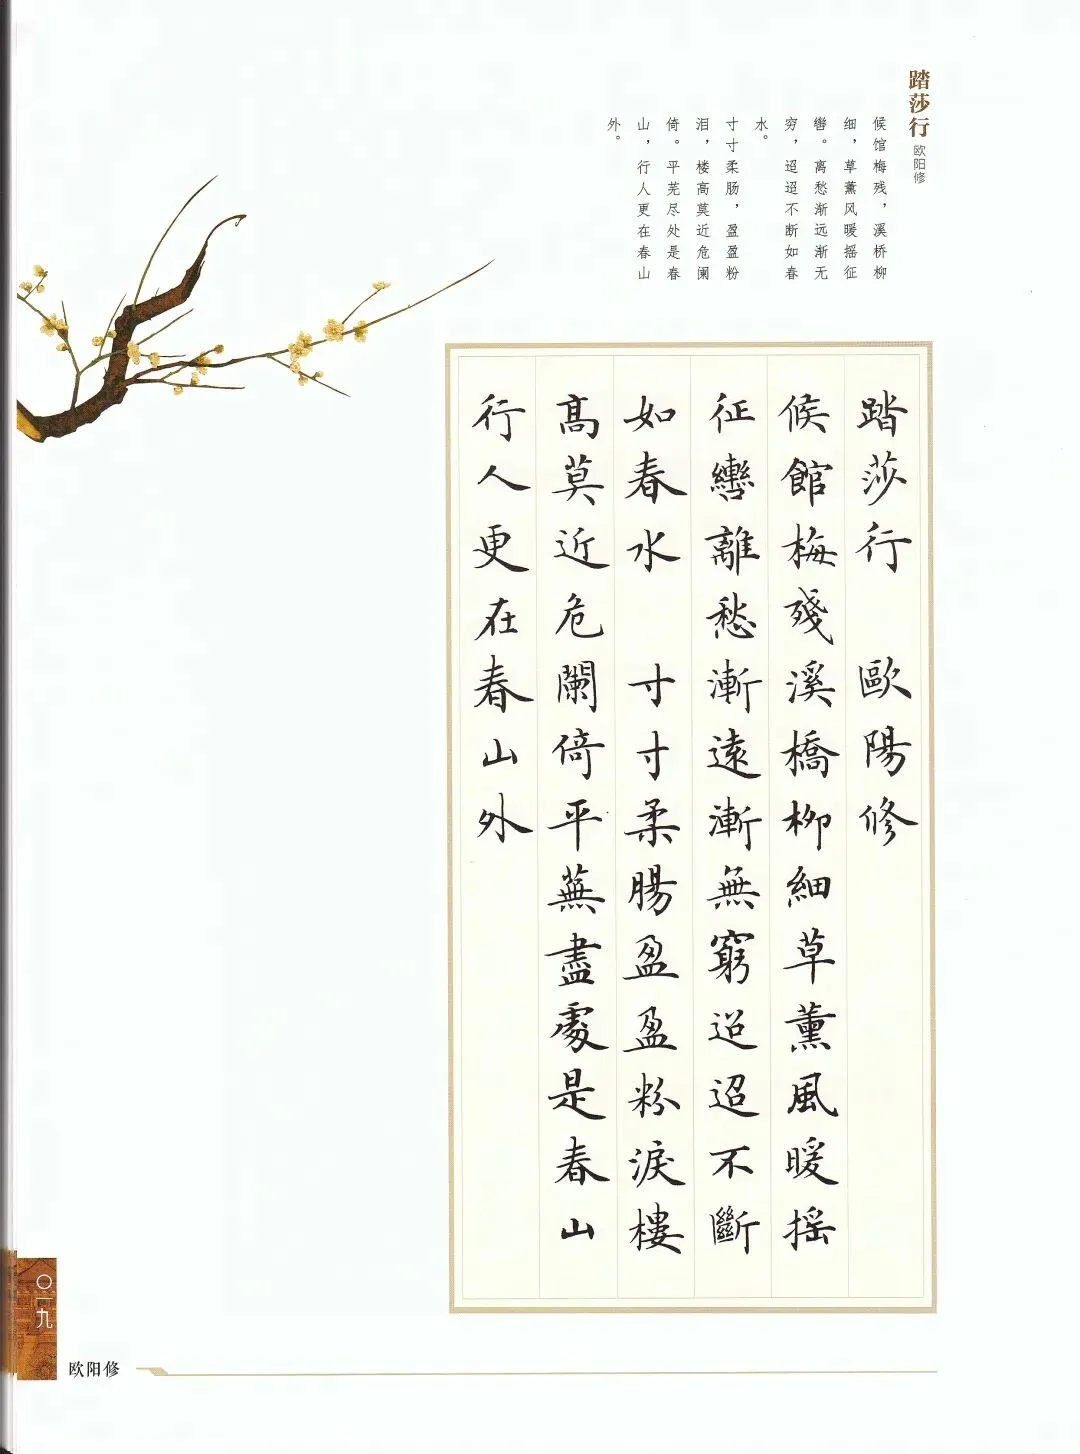 踏莎行
欧阳修
候馆梅残，溪桥柳
细，草薰风暖摇征
辔。离愁渐远渐无
穷，迢迢不断如春
水。
寸寸柔肠，盈盈粉
泪，楼高莫近危阑
倚。平芜尽处是春
山，行人更在春山
外。
踏莎行 歐陽修
候館梅殘溪橋柳細草薰風暖摇
征轡離愁漸遠漸無窮迢迢不斷
如春水 寸寸柔腸盈盈粉淚樓
高莫近危闌倚平蕪盡處是春山
行人更在春山外
〇一九
欧阳修